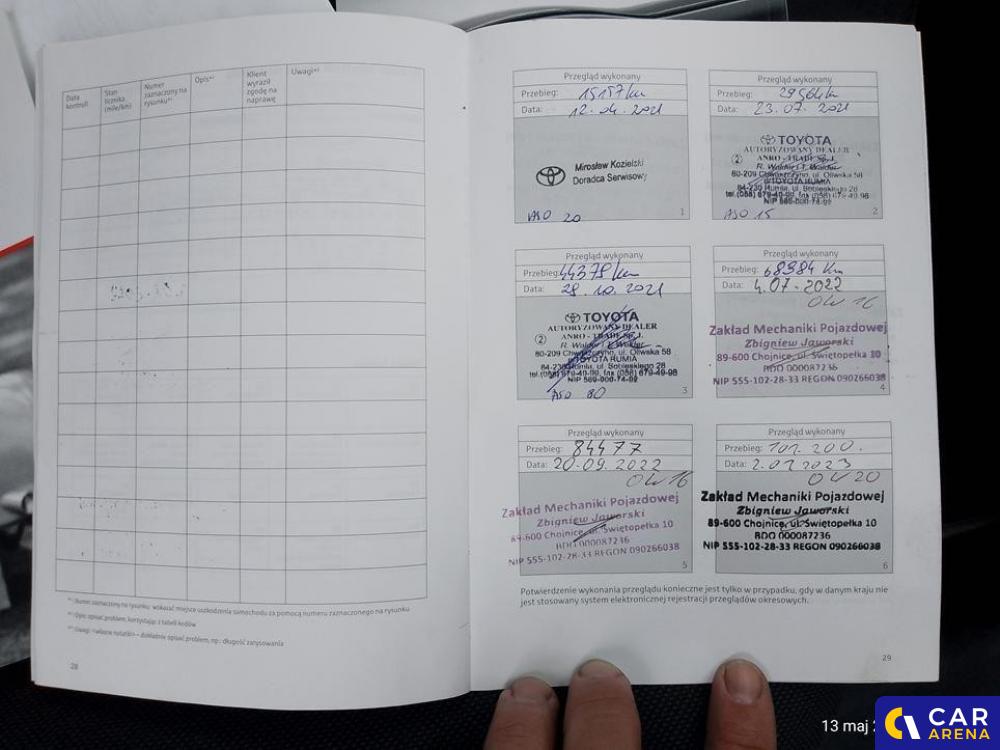 Data kontroli
Stan licznika (mile/km)
Numer zaznaczony na rysunku*¹
Opis*²
Klient wyraził zgodę na naprawę
Uwagi*³
*¹ Numer zaznaczony na rysunku: wskazać miejsce uszkodzenia samochodu za pomocą numeru zaznaczonego na rysunku
*² Opis: opisać problem, korzystając z tabeli kodów
*³ Uwagi: <własne notatki> – dokładnie opisać problem, np.: długość zarysowania
28
Przegląd wykonany
Przebieg: 15157 km
Data: 12.04.2021
Mirosław Kozielski
Doradca Serwisowy
ASO 20
1
Przegląd wykonany
Przebieg: 29564 km
Data: 23.07.2021
TOYOTA
AUTORYZOWANY DEALER
2 ANRO - TRADE Sp. J.
R. Walder i T. Walder
80-209 Chwaszczyno, ul. Oliwska 58
TOYOTA RUMIA
84-230 Rumia, ul. Sobieskiego 28
ASO 15
2
Przegląd wykonany
Przebieg: 44379 km
Data: 28.10.2021
TOYOTA
AUTORYZOWANY DEALER
2 ANRO - TRADE Sp. J.
80-209 Chwaszczyno, ul. Oliwska 58
TOYOTA RUMIA
84-230 Rumia, ul. Sobieskiego 28
ASO 80
3
Przegląd wykonany
Przebieg: 68984 km
Data: 4.07.2022
OW 16
Zakład Mechaniki Pojazdowej
Zbigniew Jaworski
89-600 Chojnice, ul. Świętopełka 10
BDO 000087236
NIP 555-102-28-33 REGON 090266038
4
Przegląd wykonany
Przebieg: 84477
Data: 20.09.2022
OW 16
Zakład Mechaniki Pojazdowej
Zbigniew Jaworski
89-600 Chojnice, ul. Świętopełka 10
BDO 000087236
NIP 555-102-28-33 REGON 090266038
5
Przegląd wykonany
Przebieg: 101.200.
Data: 2.01.2023
OW 20
Zakład Mechaniki Pojazdowej
Zbigniew Jaworski
89-600 Chojnice, ul. Świętopełka 10
BDO 000087236
NIP 555-102-28-33 REGON 090266038
6
Potwierdzenie wykonania przeglądu konieczne jest tylko w przypadku, gdy w danym kraju nie
jest stosowany system elektronicznej rejestracji przeglądów okresowych.
29
13 maj
CAR
ARENA